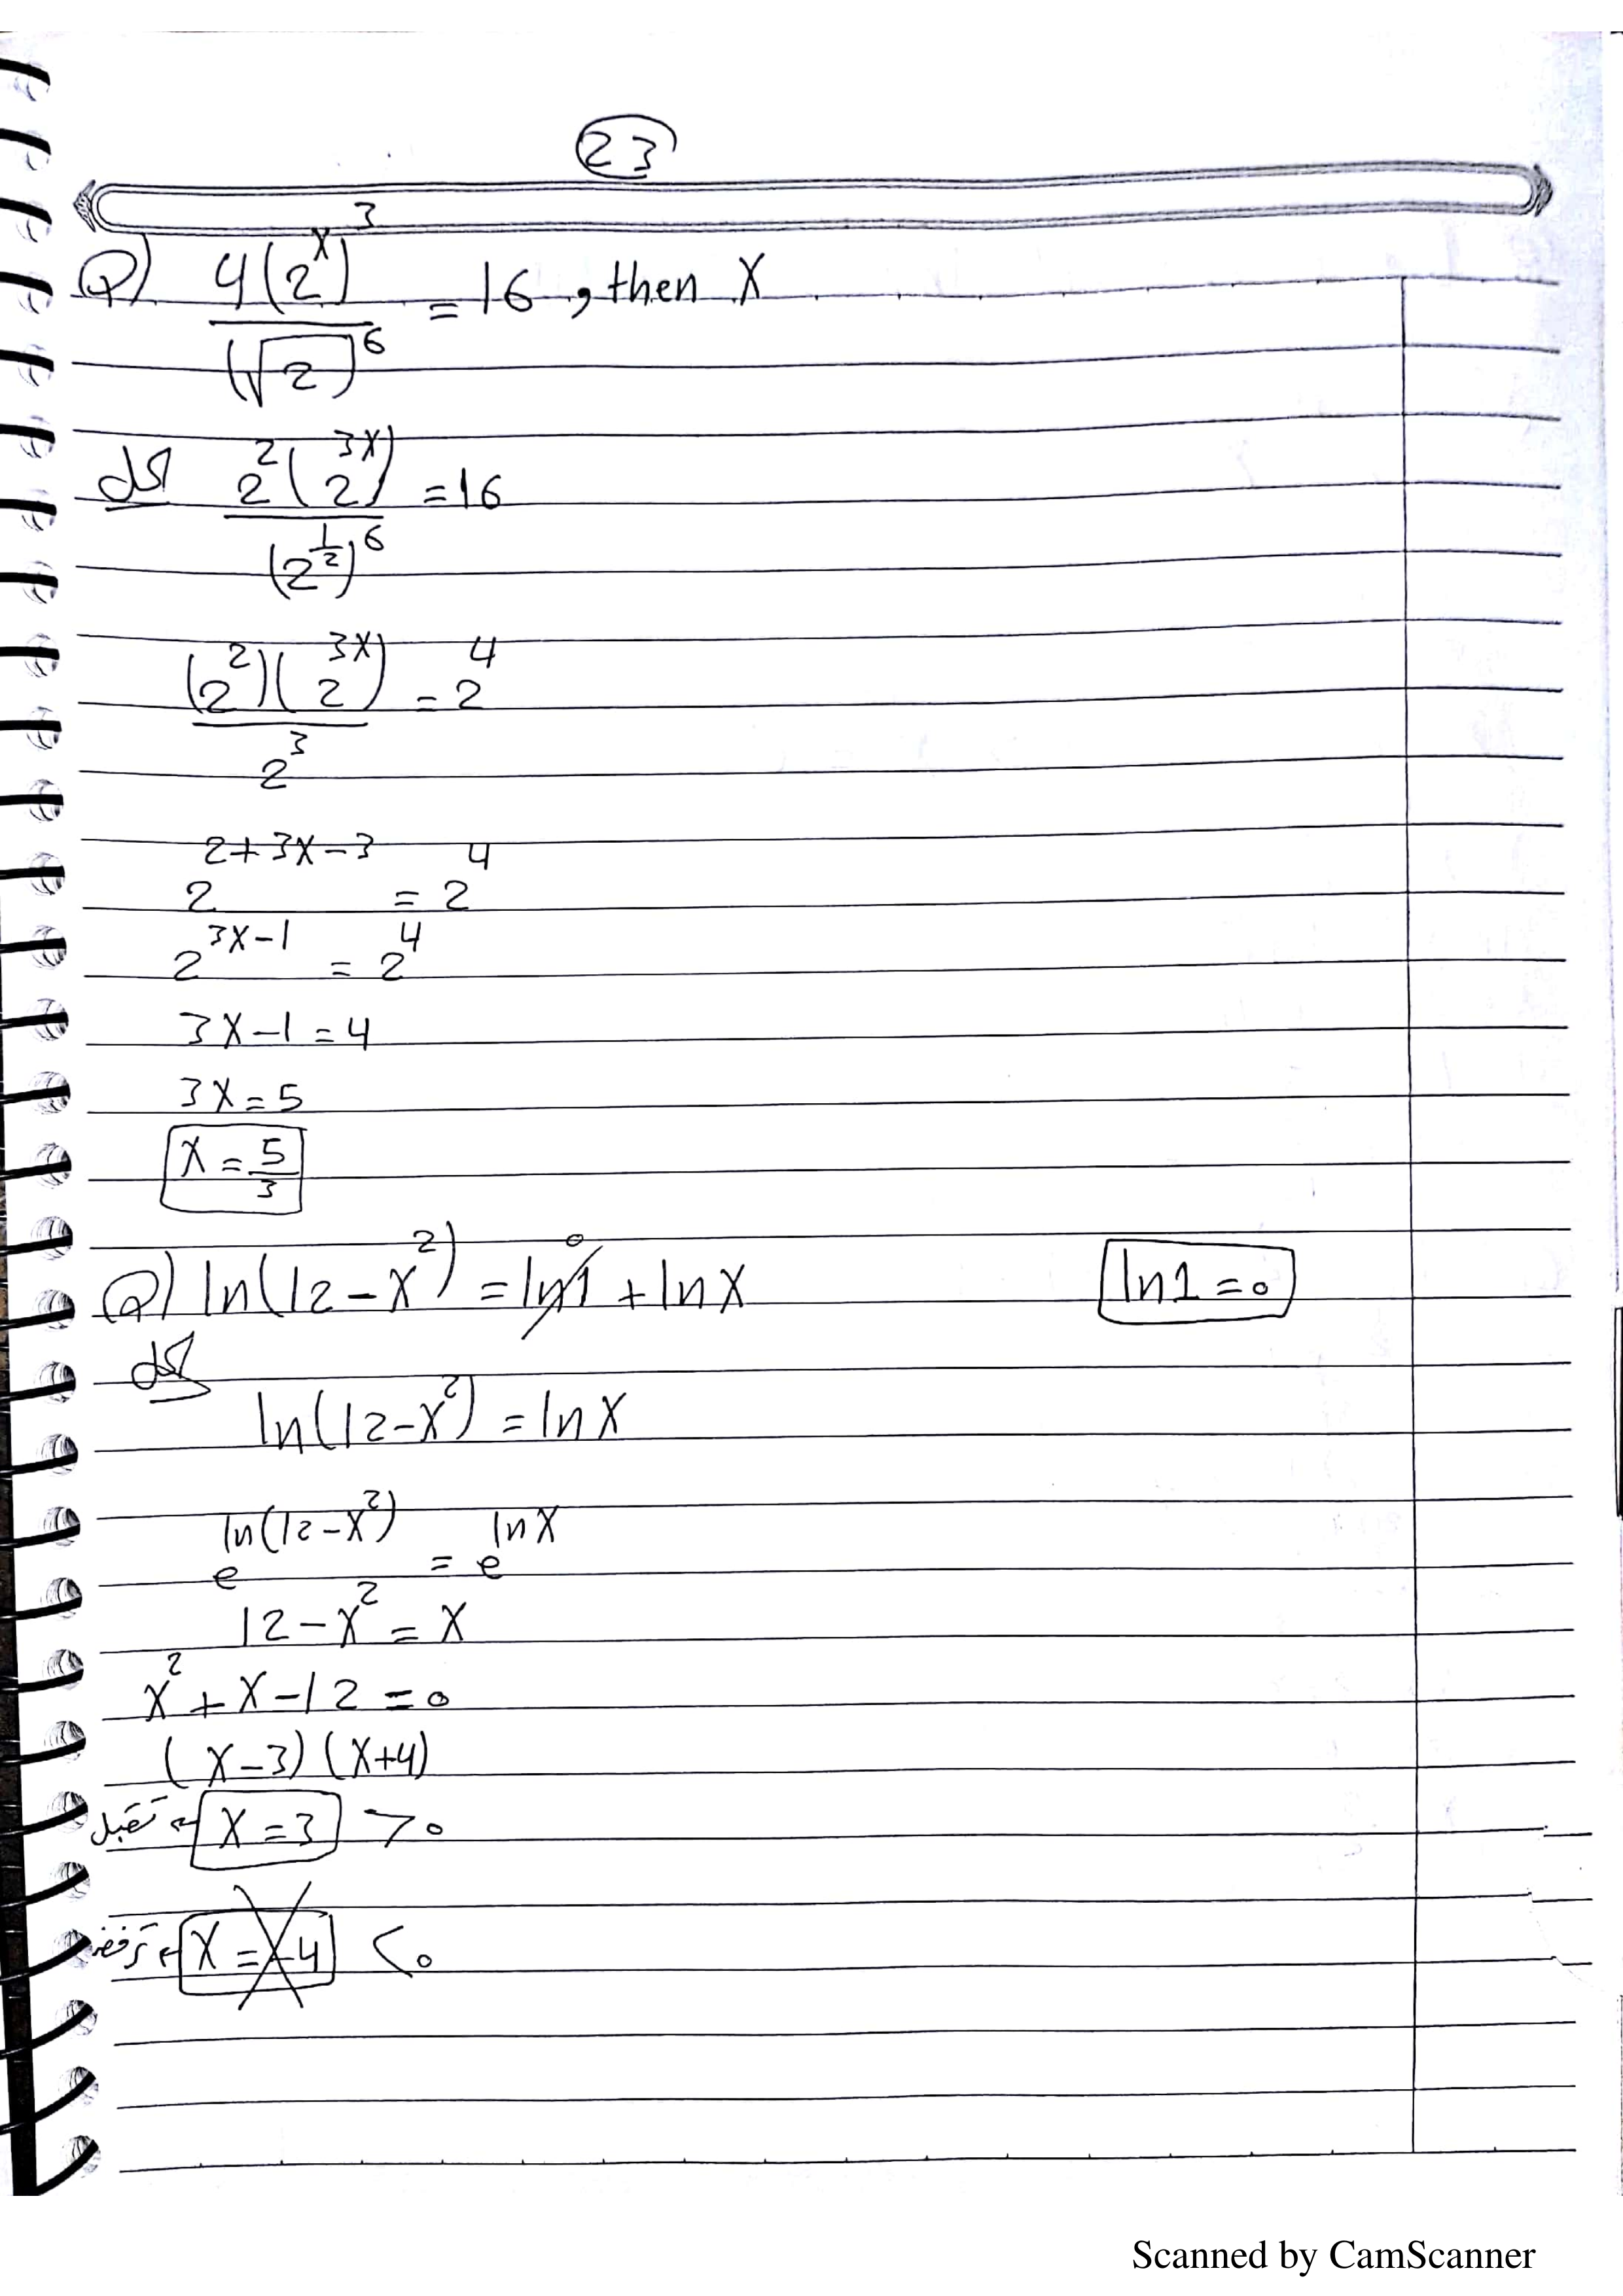 23
Q) 4(2^x)^3 / (√2)^6 = 16, then X
الحل 2^2(2^{3X}) / (2^{1/2})^6 = 16
(2^2)(2^{3X}) / 2^3 = 2^4
2^{2+3X-3} = 2^4
2^{3X-1} = 2^4
3X-1=4
3X=5
X = 5/3
Q) ln(12-X^2) = ln1 + lnX ln1=0
0
الحل
ln(12-X^2) = lnX
e^{ln(12-X^2)} = e^{lnX}
12-X^2 = X
X^2+X-12=0
(X-3)(X+4)
X=3 >0 ← تقبل
X=-4 <0 ←
Scanned by CamScanner